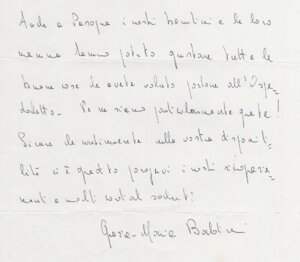 Anche a Pasqua i nostri bambini e le loro
mamme hanno potuto gustare tutte le
buone cose che avete voluto portare all'Ospe-
daletto. Ve ne siamo particolarmente grate!
Sicure di continuare nella vostra disponibi-
lità vi è gradito porgervi i nostri ringrazia-
menti e molti cordiali saluti.
Maria